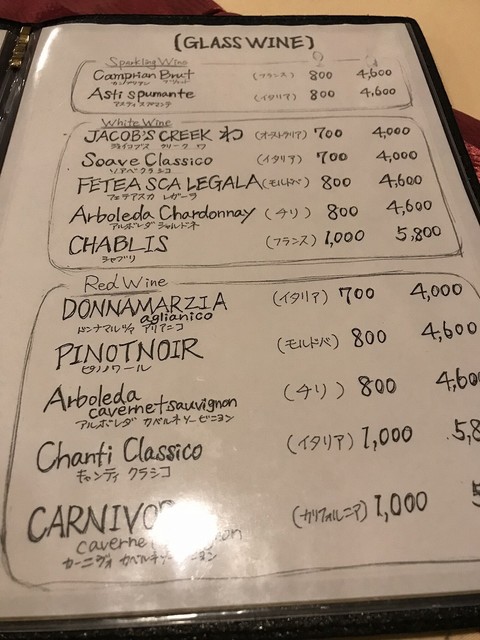 (GLASS WINE)
Sparkling Wine
Camprian Brut (フランス) 800 4,600
Asti spumante (イタリア) 800 4,600
アスティスプマンテ
White Wine
JACOB'S CREEK わ (オーストラリア) 700 4,000
ジェイコブス クリーク わ
Soave Classico (イタリア) 700 4,000
ソアベクラシコ
FETEA SCA LEGALA (モルドバ) 800 4,600
フェテアスカ レガーラ
Arboleda Chardonnay (チリ) 800 4,600
アルボレダ シャルドネ
CHABLIS (フランス) 1,000 5,800
シャブリ
Red Wine
DONNAMARZIA (イタリア) 700 4,000
aglianico
ドンナマルツィア アリアニコ
PINOTNOIR (モルドバ) 800 4,600
ピノノワール
Arboleda (チリ) 800 4,60
cavernet sauvignon
アルボレダ カベルネソービニヨン
Chanti Classico (イタリア) 1,000 5,8
キャンティ クラシコ
CARNIVO (カリフォルニア) 1,000 5
caverne on
カーニヴォ カベルネ ニヨン